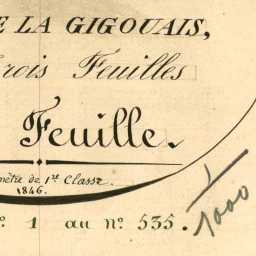 E LA GIGOUAIS,
rois Feuilles
Feuille.
mètre de 1re Classe
1846.
o. 1 au no. 535.
1/1000